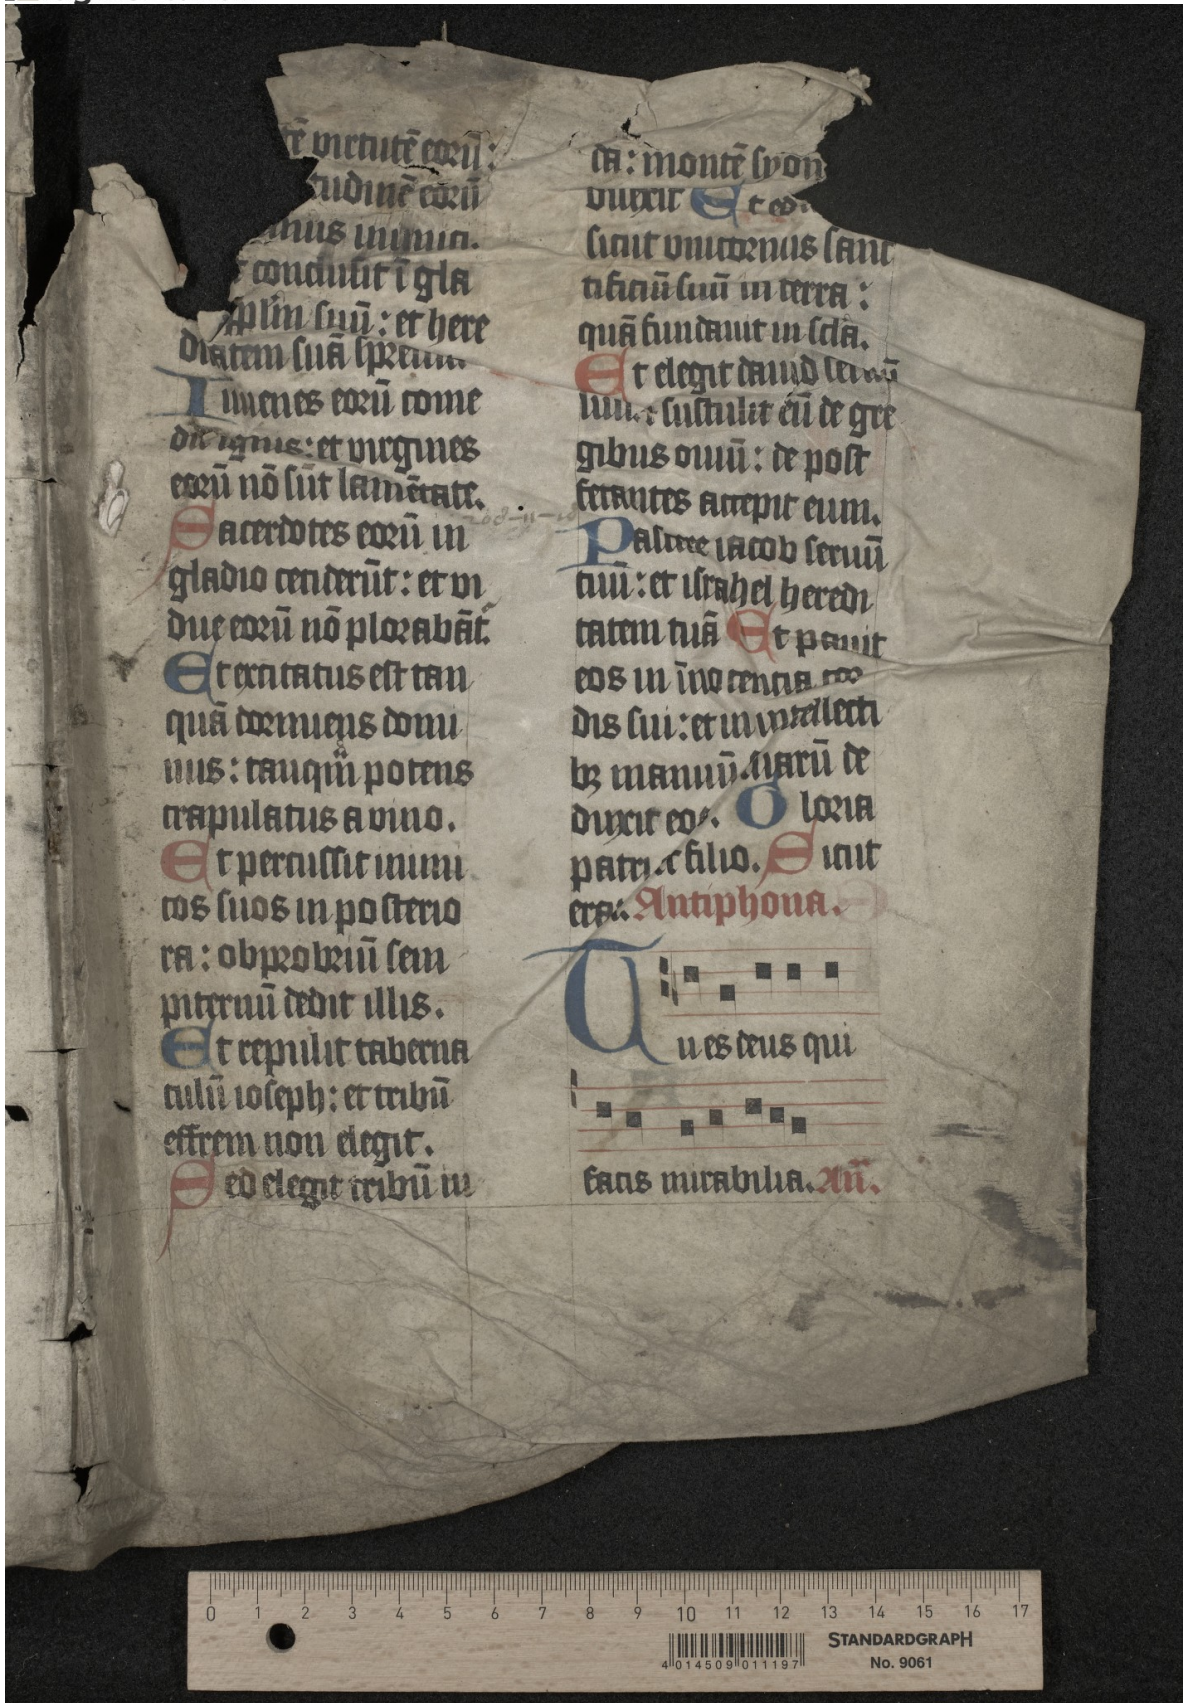 tē virtutē eorū:
tudinē eorū
conclusit ī gla
pplm suū: et here
ditatem suā sprevit
Iuuenes eorū come
dit ignis: et virgines
eorū nō sūt lamētate.
Sacerdotes eorū in
gladio ceciderūt: et vi
due eorū nō plorabāt.
Et excitatus est tan
quā dormiens domi
nus: tanqm̄ potens
crapulatus a vino.
Et percussit inimi
cos suos in posterio
ra: obprobriū sem
piternū dedit illis.
Et repulit taberna
culū ioseph: et tribū
effrem non elegit.
Sed elegit tribū iu
da: montē syon
dilexit Et edi
sicut unicornius sanc
tificiū suū in terra:
quā fundauit in scla.
Et elegit dauid seruū
suū et sustulit eū de gre
gibus ouiū: de post
fetantes accepit eum.
Pascere iacob seruū
tuū: et israhel heredi
tatem tuā Et pauit
eos in īnocentia cor
dis sui: et in intellecti
bꝫ manuū suarū de
duxit eos. Gloria
patri et filio. Sicut
erat. Antiphona.
Tu es deus qui
facis mirabilia. An̄.
0 1 2 3 4 5 6 7 8 9 10 11 12 13 14 15 16 17
STANDARDGRAPH
No. 9061
4 014509 011197